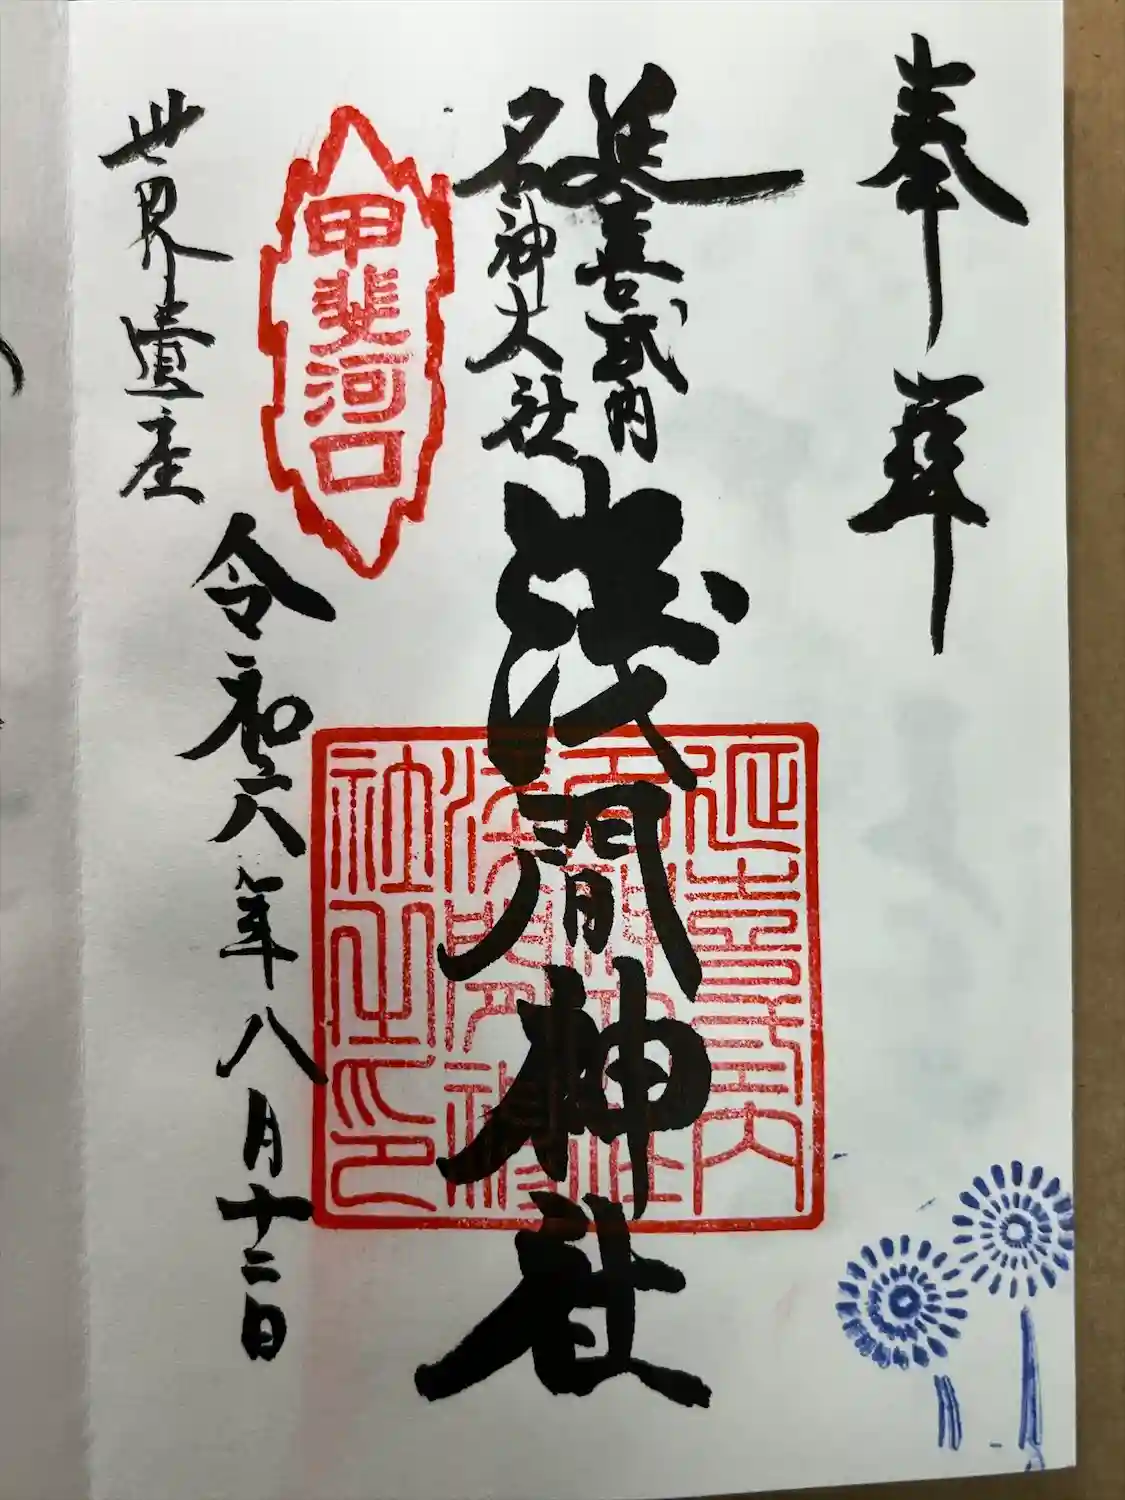 奉拝
延喜式内
名神大社
浅間神社
甲斐河口
世界遺産
令和六年八月十二日
延喜式内
名神大社
浅間神社之印